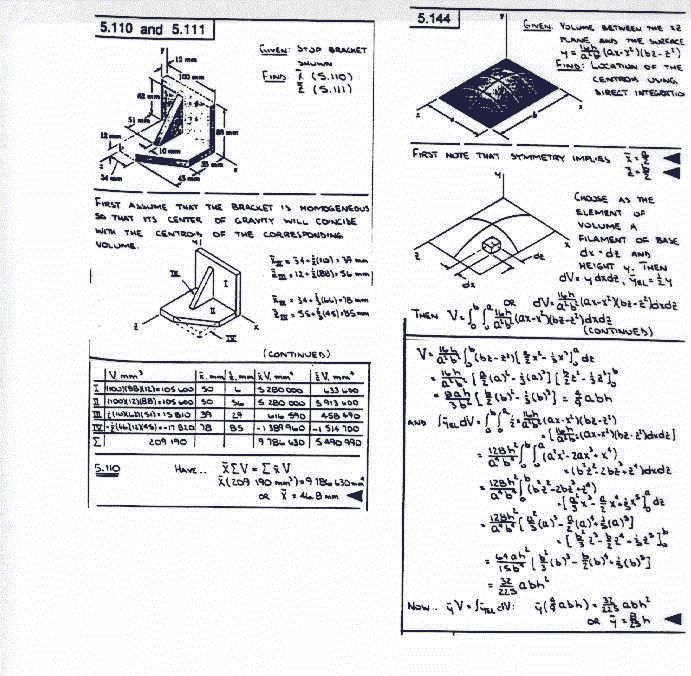 5.110 and 5.111
GIVEN: STOP BRACKET
SHOWN
FIND: x̄ (5.110)
z̄ (5.111)
y
12 mm
100 mm
62 mm
51 mm
12 mm
10 mm
88 mm
34 mm
45 mm
55 mm
z
x
FIRST ASSUME THAT THE BRACKET IS HOMOGENEOUS
SO THAT ITS CENTER OF GRAVITY WILL COINCIDE
WITH THE CENTROID OF THE CORRESPONDING
VOLUME.
y
III
I
II
IV
z
x
x̄III = 34+½(10) = 39 mm
z̄II = 12+½(88) = 56 mm
x̄IV = 34+⅔(66) = 78 mm
z̄IV = 55+⅔(45) = 85 mm
(CONTINUED)
V, mm³ x̄, mm z̄, mm x̄V, mm⁴ z̄V, mm⁴
I (100)(88)(12)=105 600 50 6 5 280 000 633 600
II (100)(12)(88)=105 600 50 56 5 280 000 5 913 600
III ½(10)(62)(51)=15 810 39 29 616 590 458 490
IV -½(66)(12)(45)=-17 820 78 85 -1 389 960 -1 514 700
Σ 209 190 9 786 630 5 490 990
5.110 HAVE.. X̄ΣV = Σx̄V
X̄(209 190 mm³) = 9 786 630 mm⁴
OR X̄ = 46.8 mm
5.144
GIVEN: VOLUME BETWEEN THE XZ
PLANE AND THE SURFACE
y = 16h/a²b² (ax-x²)(bz-z²)
FIND: LOCATION OF THE
CENTROID USING
DIRECT INTEGRATIO
y
z
x
a
b
FIRST NOTE THAT SYMMETRY IMPLIES x̄ = a/2
z̄ = b/2
CHOOSE AS THE
ELEMENT OF
VOLUME A
FILAMENT OF BASE
dx · dz AND
HEIGHT y. THEN
dV = y dxdz, ȳEL = ½y
y
z
x
dz
dx
OR dV = 16h/a²b² (ax-x²)(bz-z²)dxdz
THEN V = ∫₀ᵇ ∫₀ᵃ 16h/a²b² (ax-x²)(bz-z²)dxdz
(CONTINUED)
V = 16h/a²b² ∫₀ᵇ (bz-z²)[a/2 x² - ⅓x³]₀ᵃ dz
= 16h/a²b² [a/2 (a)² - ⅓(a)³] [b/2 z² - ⅓z³]₀ᵇ
= 8ah/3b² [b/2 (b)² - ⅓(b)³] = 4/9 abh
AND ∫ȳEL dV = ∫₀ᵇ ∫₀ᵃ ½ · 16h/a²b² (ax-x²)(bz-z²)
× [16h/a²b² (ax-x²)(bz-z²)dxdz]
= 128h²/a⁴b⁴ ∫₀ᵇ ∫₀ᵃ (a²x²-2ax³+x⁴)
× (b²z²-2bz³+z⁴)dxdz
= 128h²/a⁴b⁴ ∫₀ᵇ (b²z²-2bz³+z⁴)
× [a²/3 x³ - a/2 x⁴ + ⅕x⁵]₀ᵃ dz
= 128h²/a⁴b⁴ [a²/3 (a)³ - a/2 (a)⁴ + ⅕(a)⁵]
× [b²/3 z³ - b/2 z⁴ + ⅕z⁵]₀ᵇ
= 64ah²/15b⁴ [b²/3 (b)³ - b/2 (b)⁴ + ⅕(b)⁵]
= 32/225 abh²
NOW.. ȳV = ∫ȳEL dV: ȳ(4/9 abh) = 32/225 abh²
OR ȳ = 8/25 h